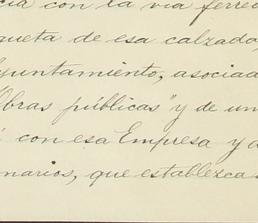 cia con la via ferre
queta de esa calzada,
yuntamiento, asociad
Obras públicas" y de un
con esa Empresa y a
narios, que establezca